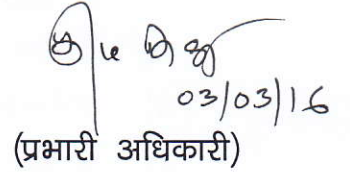 03/03/16
(प्रभारी अधिकारी)